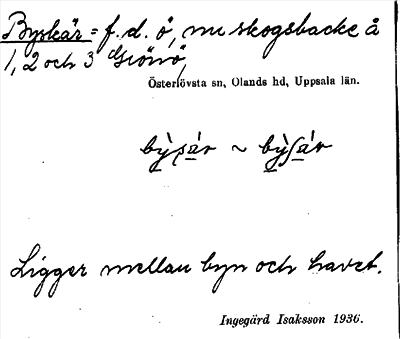 Byskär = f. d. ö, nu skogsbacke å
1, 2 och 3 Gräsö,
Österlövsta sn, Olands hd, Uppsala län.
Ligger mellan byn och havet.
Ingegärd Isaksson 1936.